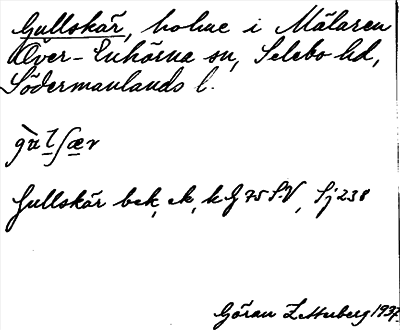 Gullskär, holme i Mälaren
Över-Enhörna sn, Selebo hd,
Södermanlands l.
Gullskär bek, ek, kG 75 S.V, Sj 238
Göran Zetterberg 1937